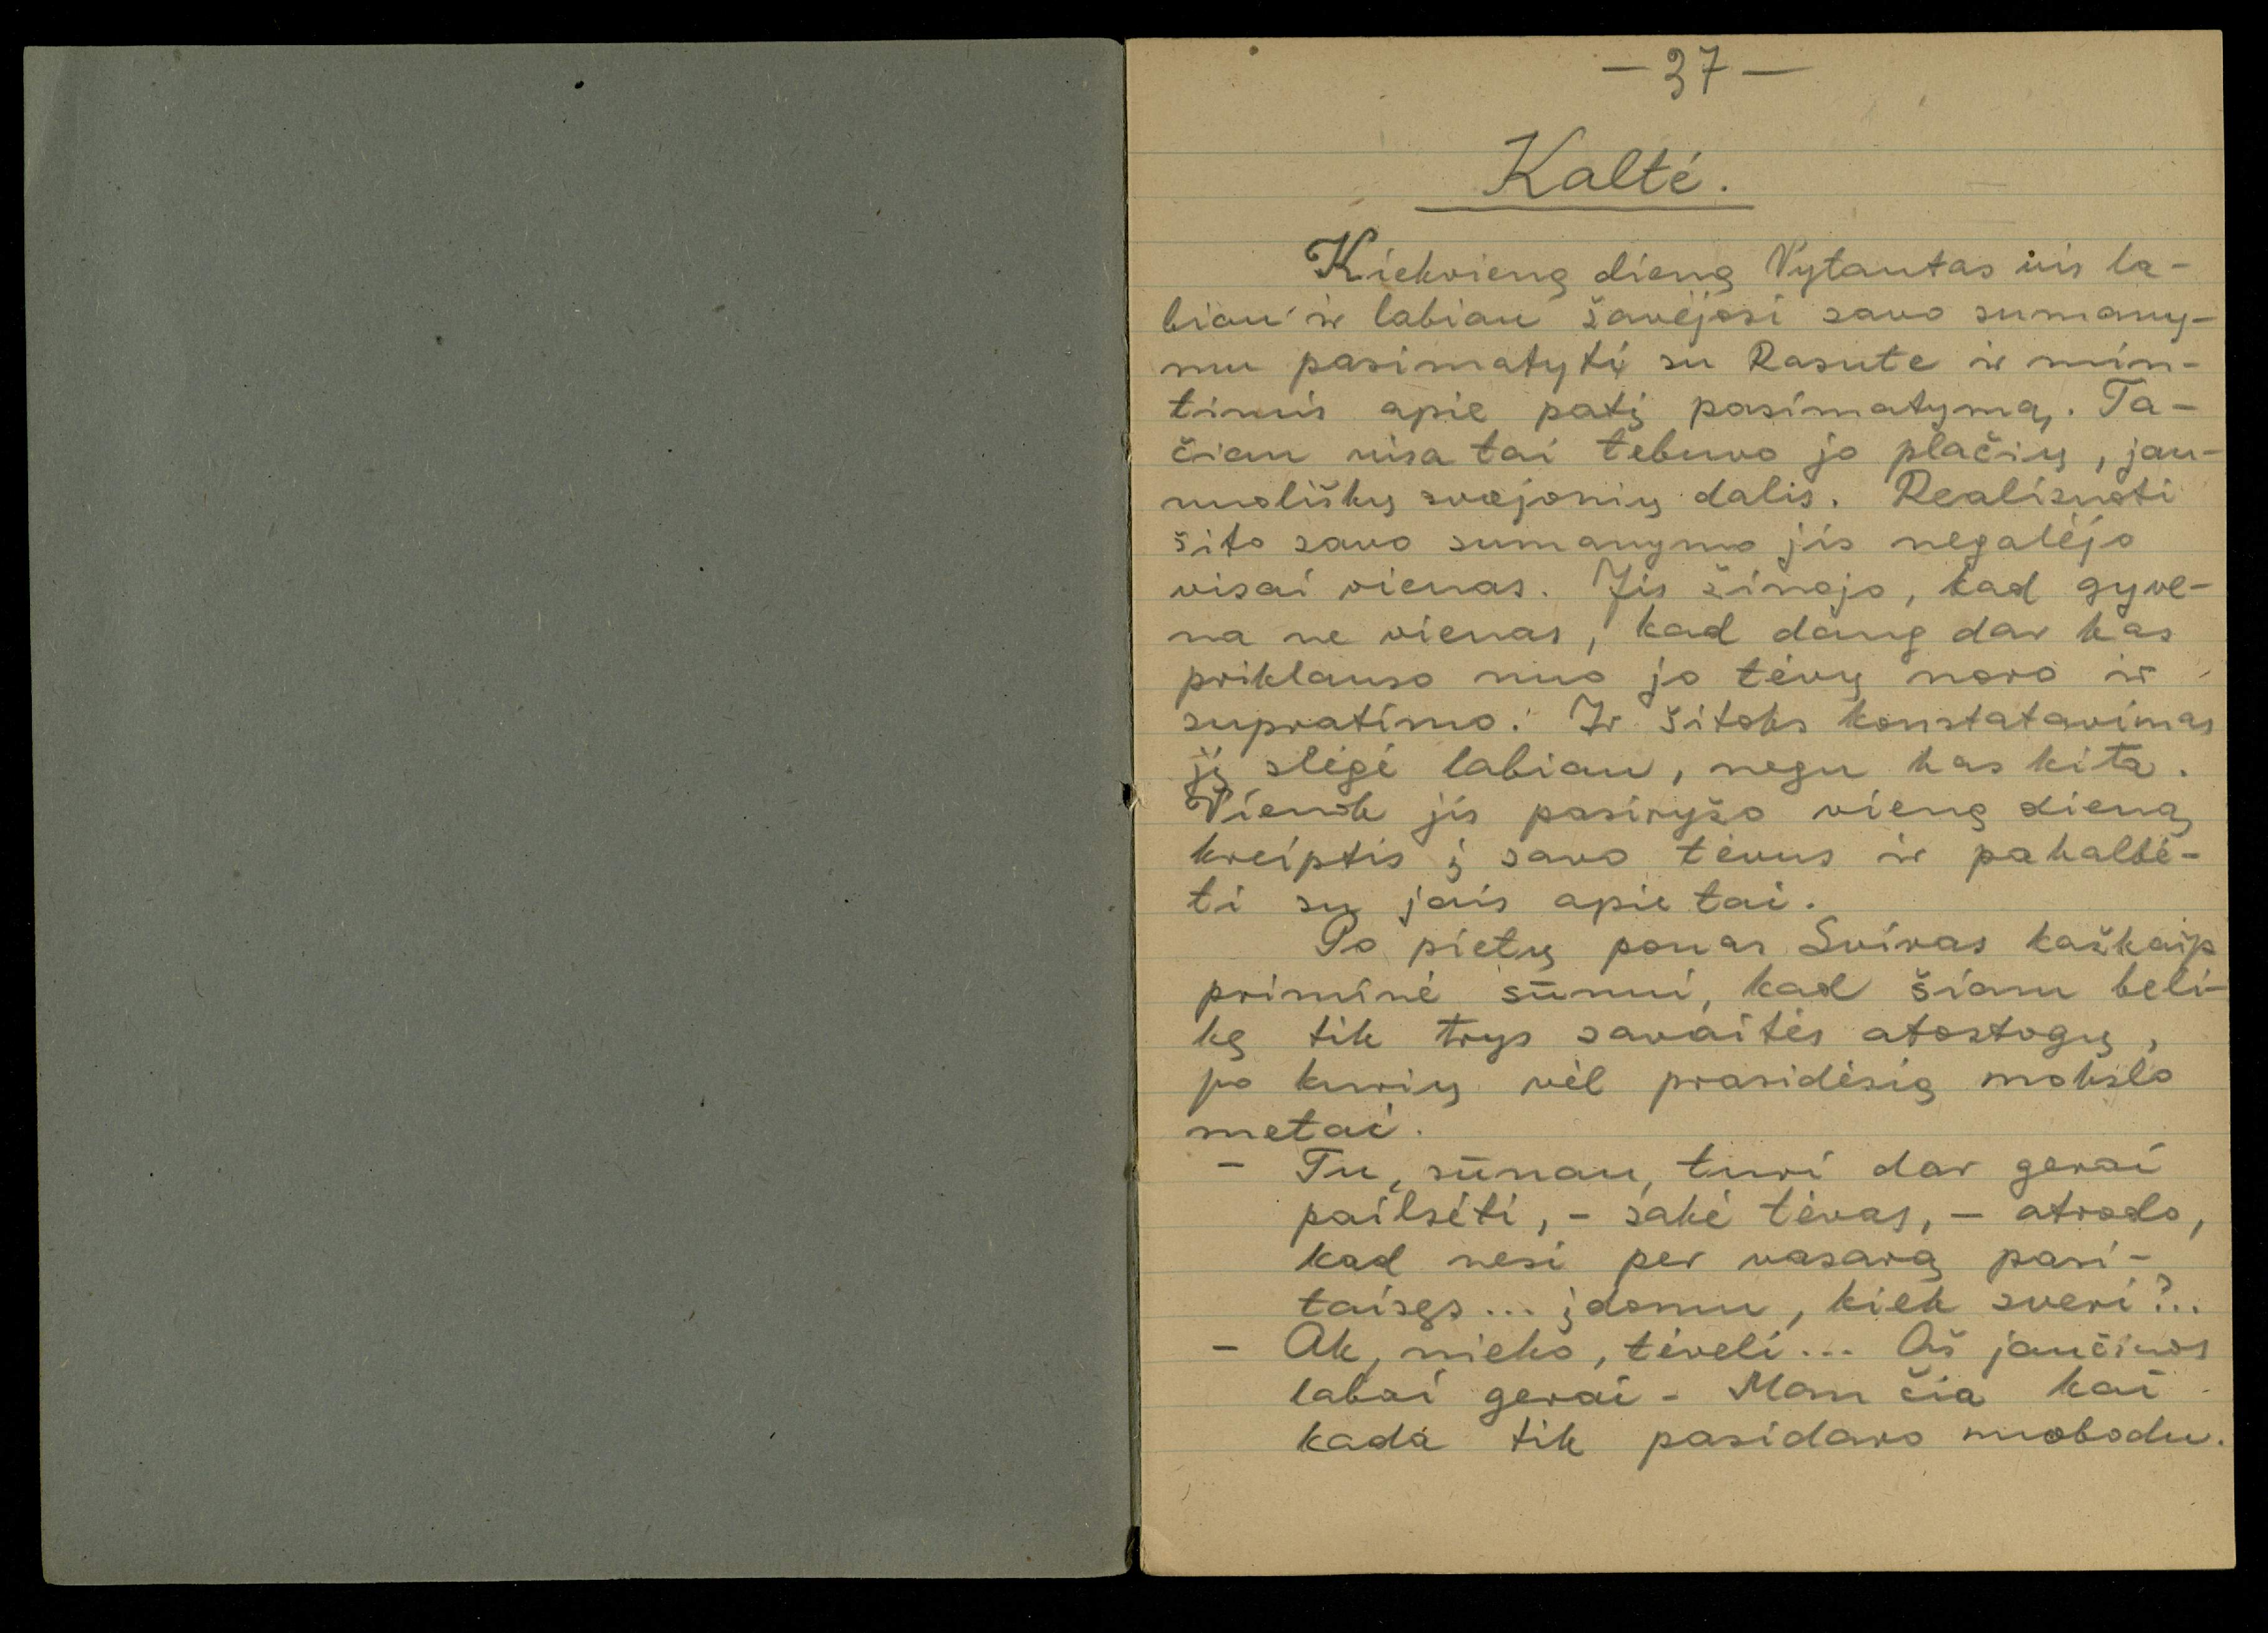 — 37 —
Kaltė.
Kiekvieną dieną Vytautas vis la-
biau ir labiau žavėjosi savo sumany-
mu pasimatyti su Rasute ir min-
timis apie patį pasimatymą. Ta-
čiau visa tai tebuvo jo plačių, jau-
nuoliškų svajonių dalis. Realizuoti
šito savo sumanymo jis negalėjo
visai vienas. Jis žinojo, kad gyve-
na ne vienas, kad daug dar kas
priklauso nuo jo tėvų noro ir
supratimo. Ir šitoks konstatavimas
jį slėgė labiau, negu kas kita.
Vienok jis pasiryžo vieną dieną
kreiptis į savo tėvus ir pakalbė-
ti su jais apie tai.
Po pietų ponas Svíras kažkaip
priminė sūnui, kad šiam beli-
kę tik trys savaitės atostogų,
po kurių vėl prasidėsią mokslo
metai.
- Tu, sūnau, turi dar gerai
pailsėti, - sakė tėvas, - atrodo,
kad nesi per vasarą pasi-
taisęs... įdomu, kiek sveri?..
- Ak, nieko, tėveli... Aš jaučiuos
labai gerai - Man čia kai
kada tik pasidaro nuobodu.